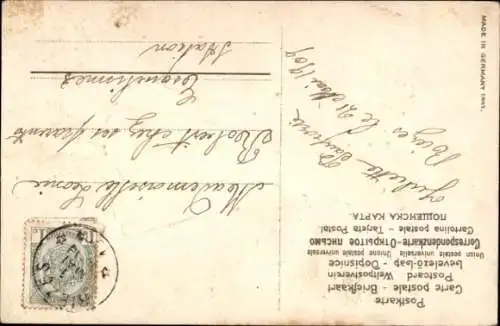 Postkarte
Carte postale - Briefkaart
Postcard - Weltpostverein
Levelező-Lap - Dopisnice
Union postale universelle Unione postale universale
Correspondenzkarte-Открытое письмо
Cartolina postale - Tarjeta Postal.
ПОШЕНСКА КАРТА.
MADE IN GERMANY
Mademoiselle Léonie
Robert chez ses parents
Station
Juliette
Bièvre le 21 Mai 1909